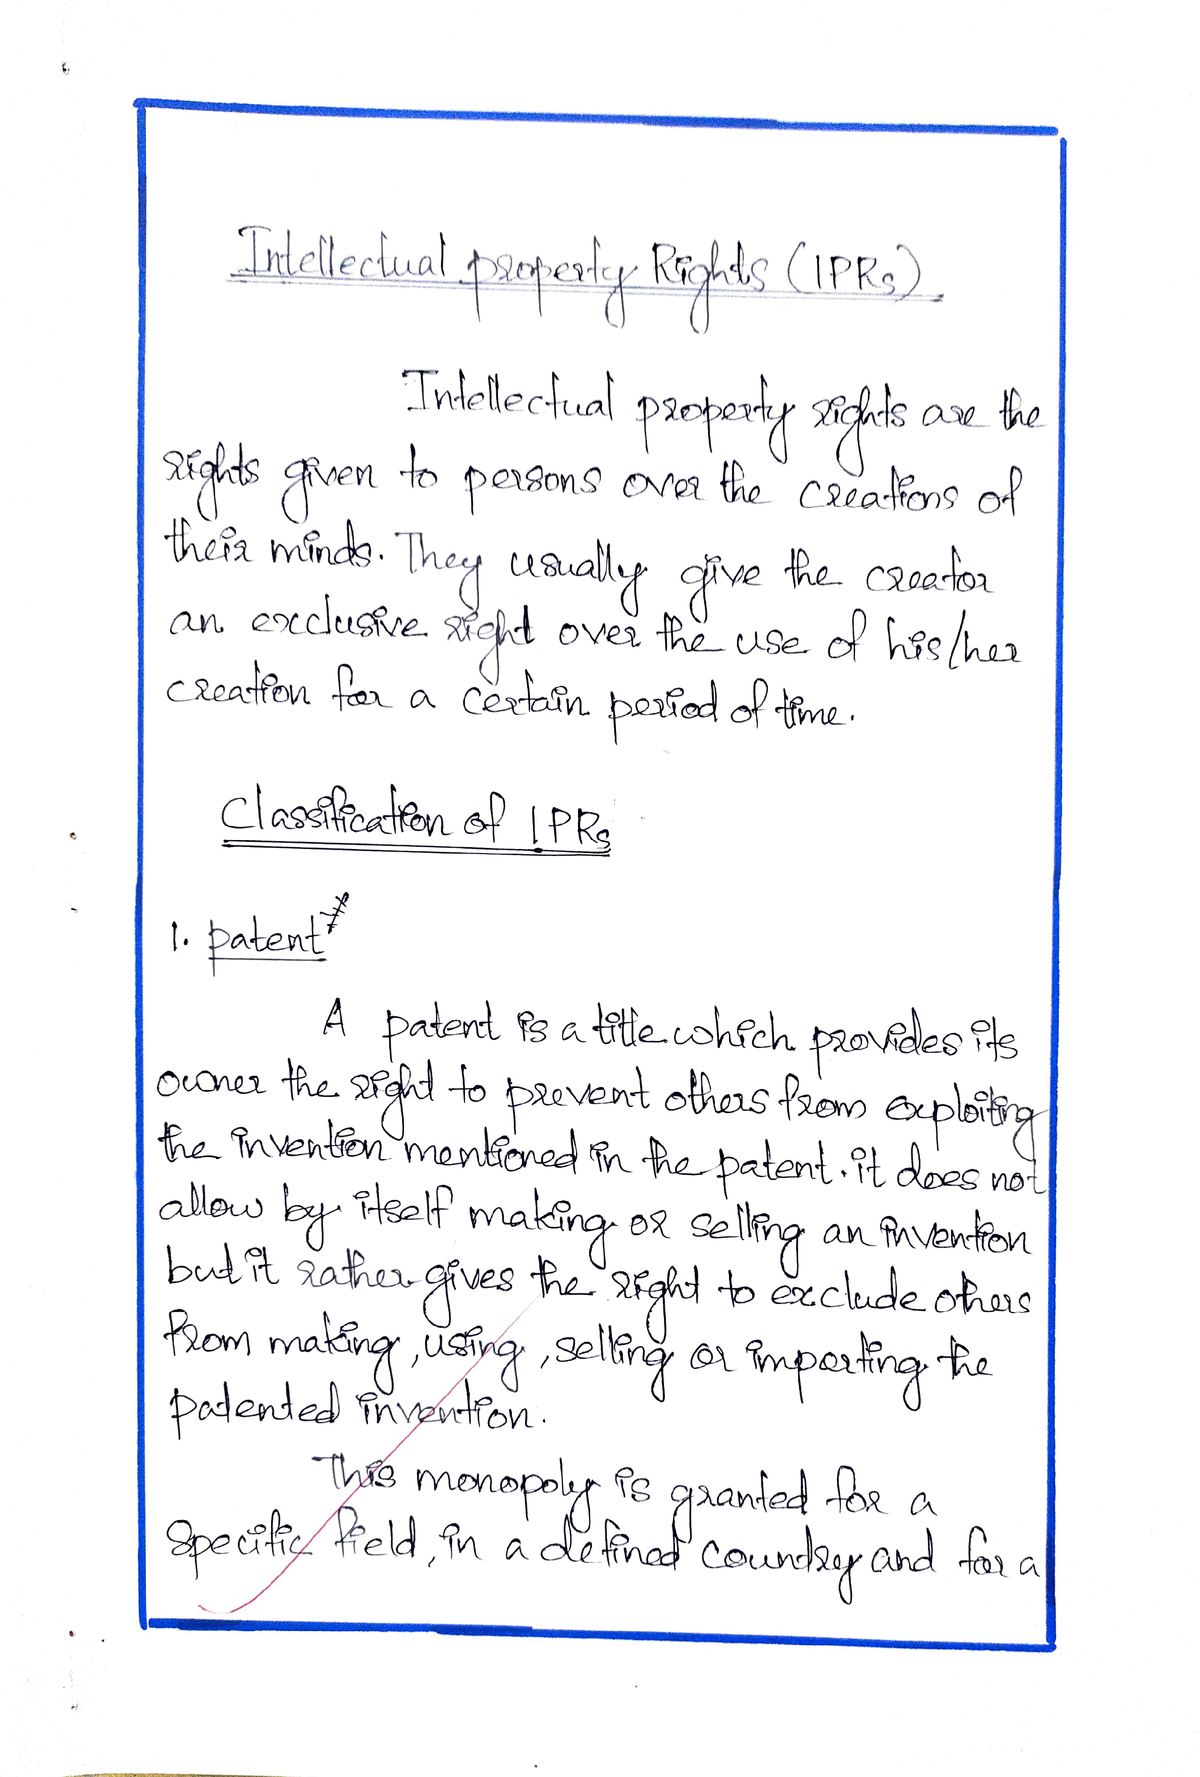 Intellectual property Rights (IPRs).
Intellectual property rights are the
rights given to persons over the creations of
their minds. They usually give the creator
an exclusive right over the use of his/her
creation for a certain period of time.
Classification of IPRs
1. patent*
A patent is a title which provides its
owner the right to prevent others from exploiting
the invention mentioned in the patent. it does not
allow by itself making or selling an invention
but it rather gives the right to exclude others
from making, using, selling or importing the
patented invention.
This monopoly is granted for a
specific field, in a defined country and for a